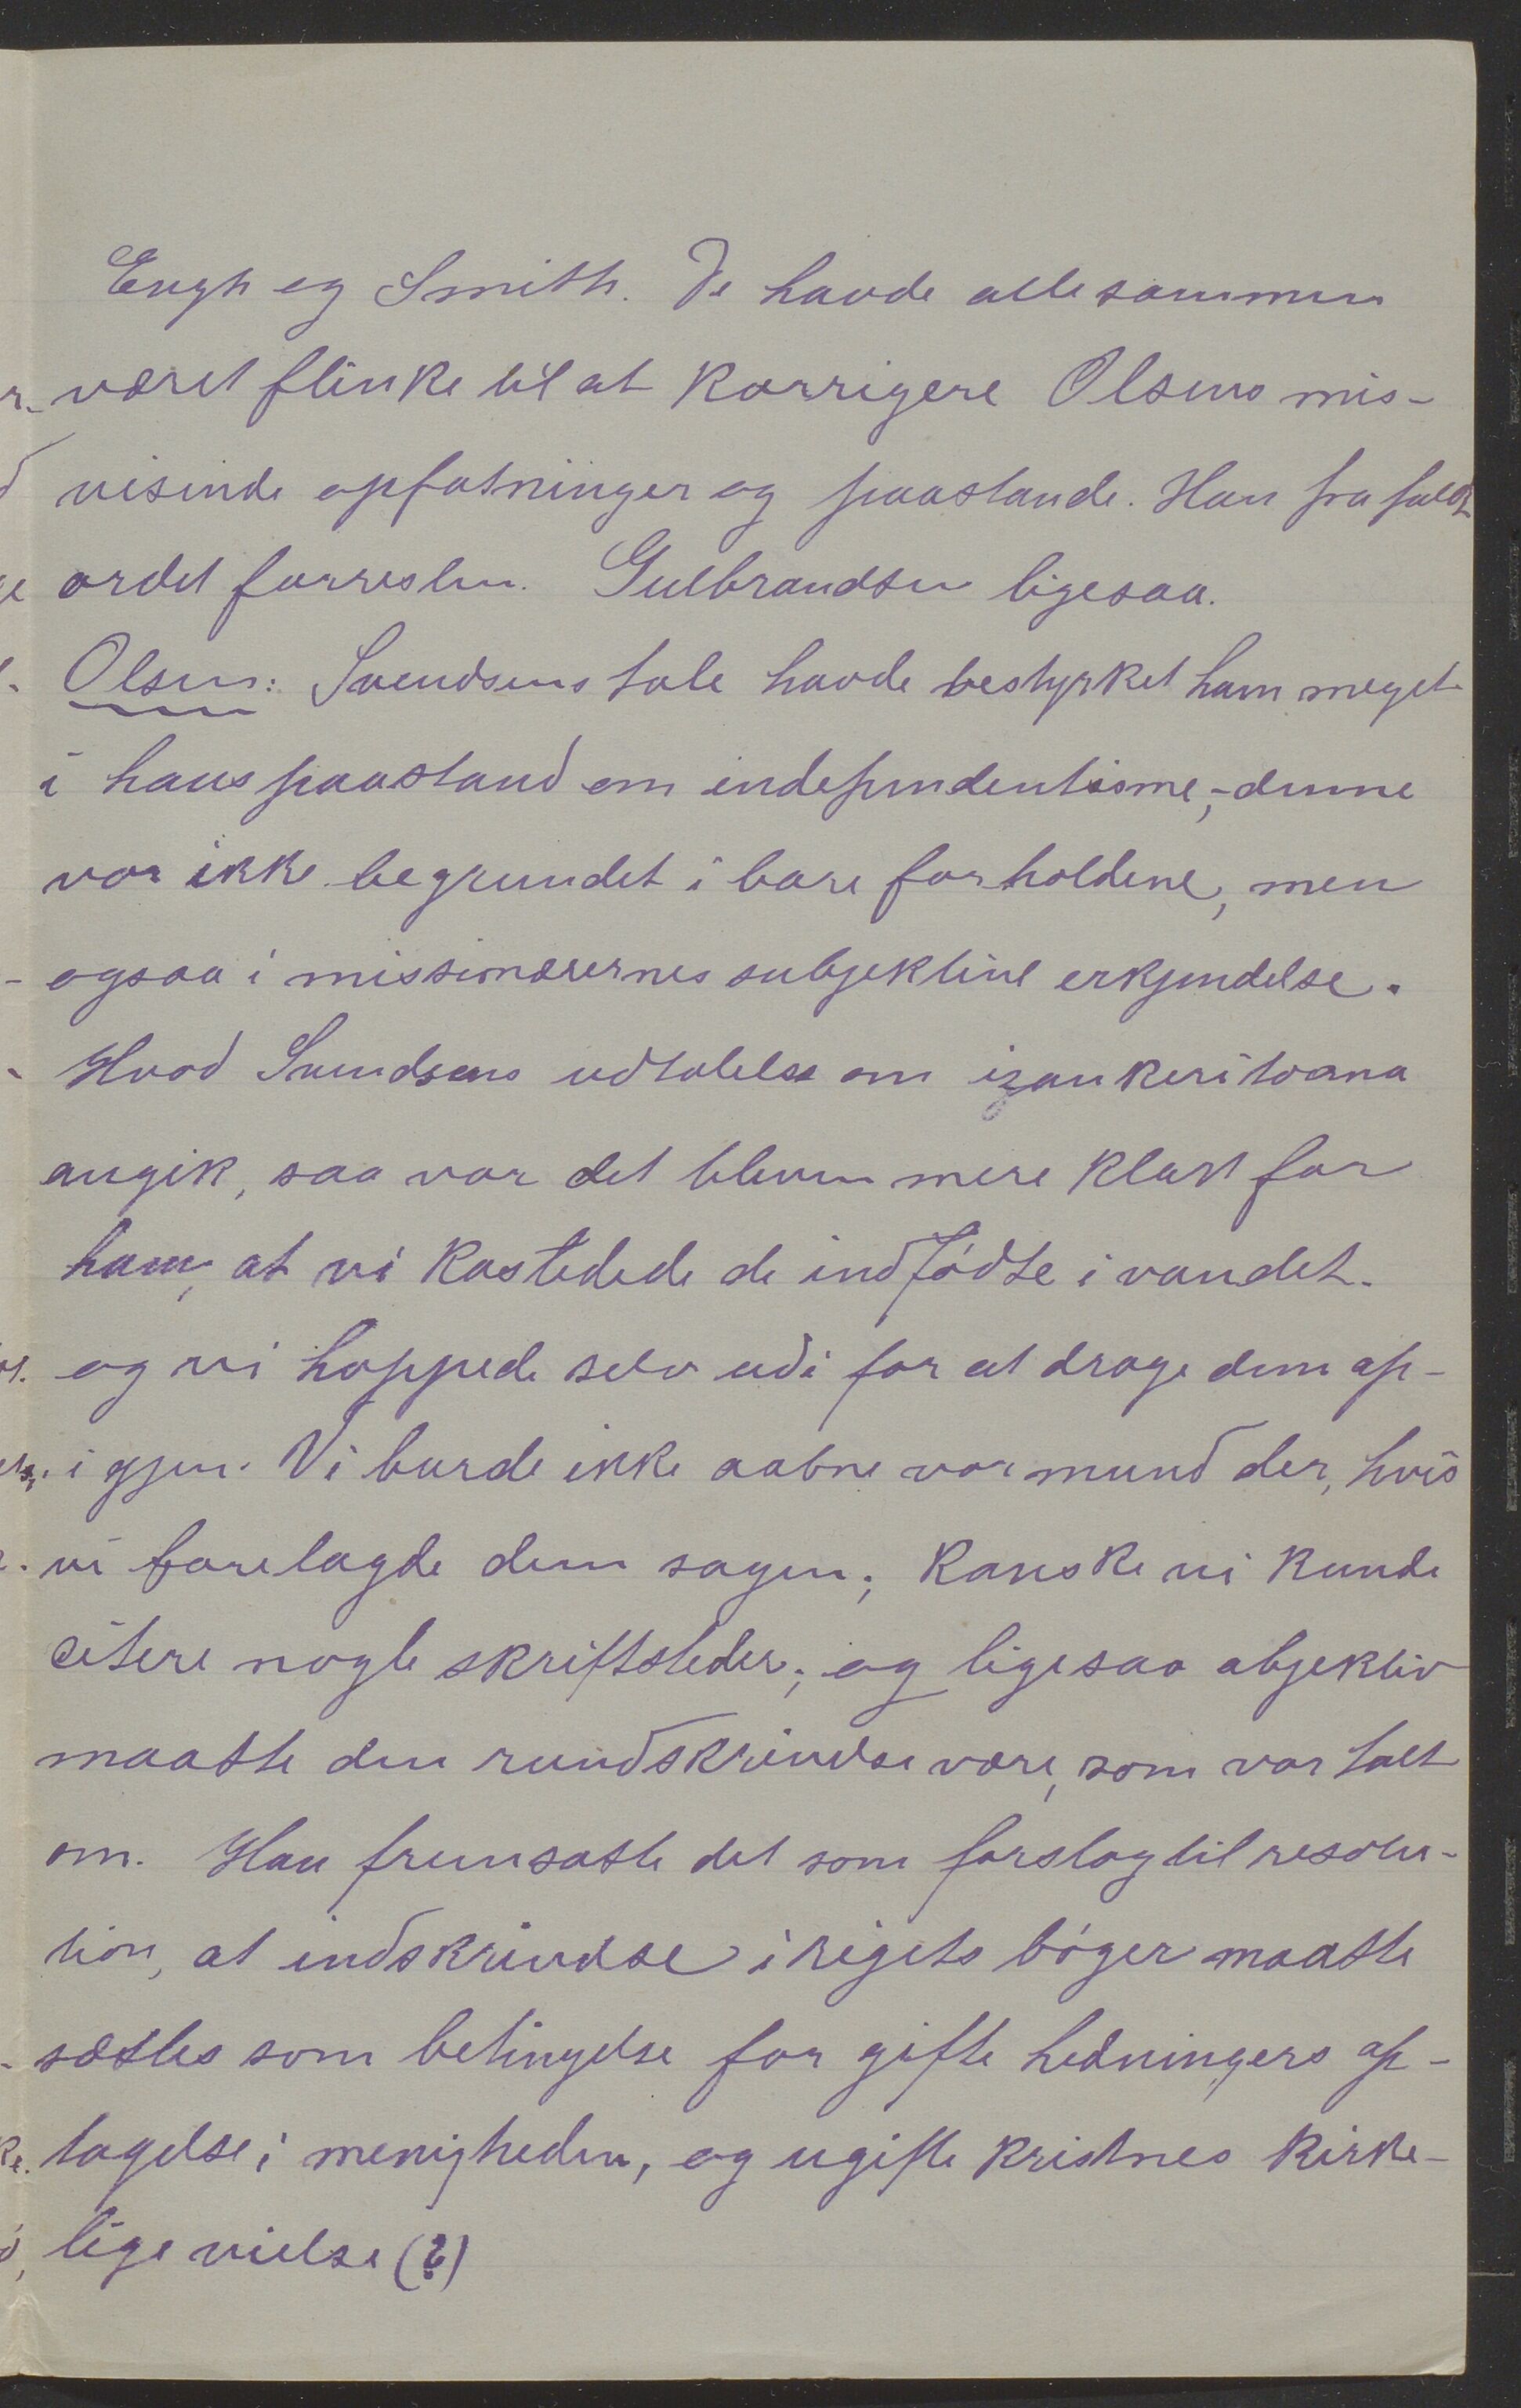 Engh og Smith. De havde allesammen
været flinke til at korrigere Olsens mis-
visende opfatninger og paastande. Han frafaldt
ordet forresten. Gulbrandsen ligesaa.
Olsen: Svendsens tale havde bestyrket ham meget
i hans paastand om independentisme, - denne
var ikke begrundet i bare forholdene, men
ogsaa i missionærernes subjektive erkjendelse.
Hvad Svendsens udtalelse om izankeritoana
angik, saa var det bleven mere klart for
ham, at vi kastedede de indfødte i vandet.
og vi hoppede selv udi for at drage dem op-
igjen. Vi burde ikke aabne vor mund der, hvis
vi forelagde dem sagen; kanske vi kunde
citere nogle skriftsteder; og ligesaa objektiv
maatte den rundskrivelse være, som var talt
om. Han fremsatte det som forslag til resolu-
tion, at indskrivelse i rigets bøger maatte
sættes som betingelse for gifte hedningers op-
tagelse i menigheden, og ugifte kristnes kirke-
lige vielse (?)